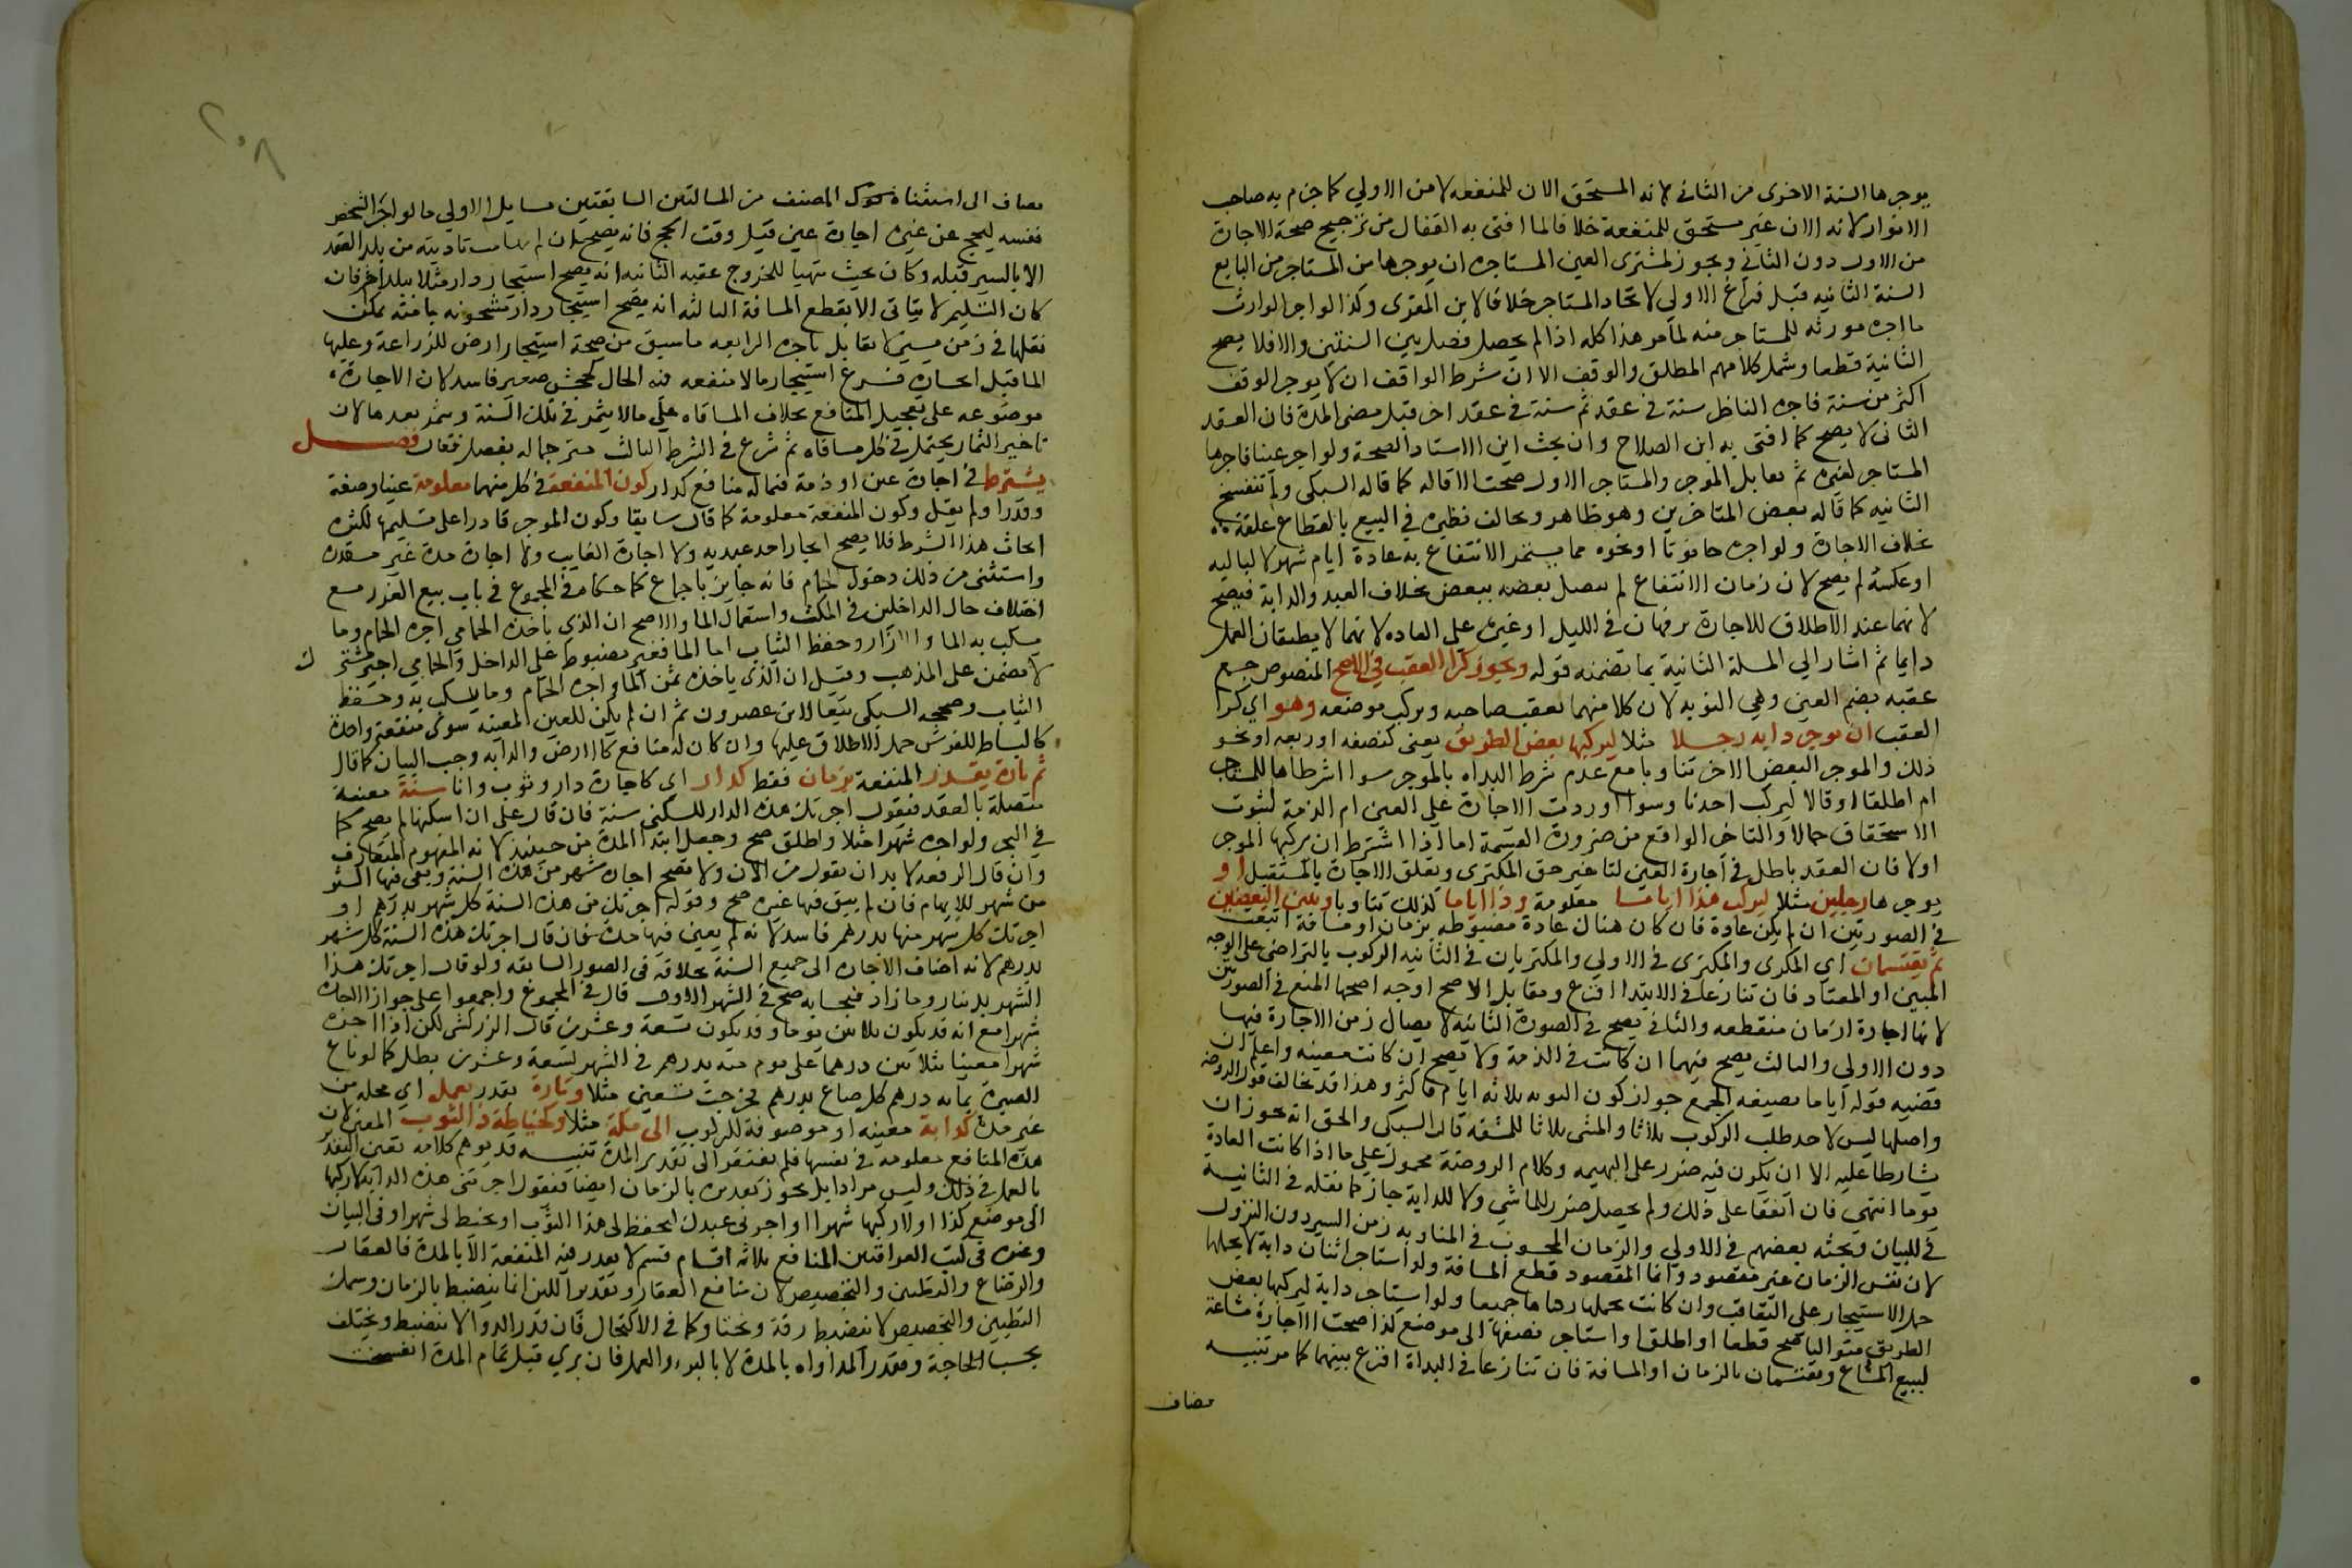 يوجرها السنة الاخرى من الثاني لانه المستحق الان للمنفعه لا من الاولي كما جزم به صاحب
الانوار لانه الان غير مستحق للمنفعة خلافا لما افتى به القفال من ترجيح صحة الاجارة
من الاول دون الثاني ويجوز لمشترى العين المستاجره ان يوجرها من المستاجر من البايع
السنة الثانيه قبل فراغ الاولي لاتحاد المستاجر خلافا لابن المقرى وكذا لو اجر الوارث
ما اجره مورثه للمستاجر منه لما مر هذا كله اذا لم يحصل فصل بين السنتين والا فلا يصح
الثانية قطعا وشمل كلامهم المطلق والوقف الا ان شرط الواقف ان لا يوجر الوقف
اكثر من سنة فاجره الناظر سنة في عقد ثم سنة في عقد اخر قبل مضى المدة فان العقد
الثانى لا يصح كما افتى به ابن الصلاح وان بحث ابن الاستاد الصحة ولو اجر عينا فاجرها
المستاجر لغيره ثم تقايل الموجر والمستاجر الاول صحت الاقاله كما قاله السبكى ولم تنفسخ
الثانيه كما قاله بعض المتاخرين وهو ظاهر ويخالف نظيره في البيع بانقطاع علقته
بخلاف الاجارة ولو اجره حانوتا او نحوه مما يستمر الانتفاع به عادة ايام شهر لا لياليه
او عكسه لم يصح لان زمان الانتفاع لم يتصل بعضه ببعض بخلاف العبد والدابة فيصح
لانهما عند الاطلاق للاجارة يرفهان في الليل او غيره على العاده لانهما لا يطيقان العمل
دايما ثم اشار الي المسلة الثانية بما تضمنه قوله ويجوز كرا العقب في الاصح المنصوص جمع
عقبه بضم العين وهي النوبه لان كلا منهما يعقب صاحبه ويركب موضعه وهو اي كرا
العقب ان يوجر دابه رجلا مثلا ليركبها بعض الطريق يعنى كنصفه او ربعه او نحو
ذلك والموجر البعض الاخر تناوبا مع عدم شرط البداه بالموجر سوا اشرطاها للمستاجر
ام اطلقا او قالا ليركب احدنا وسوا اوردت الاجارة على العين ام الذمة لثبوت
الاستحقاق حالا والتاخر الواقع من ضرورة القسمة اما اذا اشترط ان يركبها الموجر
اولا فان العقد باطل في اجارة العين لتاخير حق المكترى وتعلق الاجارة بالمستقبل او
يوجرها رجلين مثلا ليركب هذا اياما معلومة وذا اياما كذلك تناوبا ويبين البعضين
في الصورتين ان لم يكن عادة فان كان هناك عادة مضبوطه بزمان او مسافة اتبعت
ثم يقتسمان اي المكرى والمكترى في الاولي والمكتريان في الثانيه الركوب بالتراضى على الوجه
المبين او المعتاد فان تنازعا في الابتدا اقرع ومقابل الاصح اوجه اصحها المنع في الصورتين
لانها اجارة ازمان منقطعه والثانى يصح في الصورة الثانيه لاتصال زمن الاجارة فيها
دون الاولي والثالث يصح فيهما ان كانت في الذمة ولا يصح ان كانت معينه واعلم ان
قضيه قوله اياما بصيغه الجمع جواز كون النوبه ثلاثه ايام فاكثر وهذا قد يخالف قول الروضه
واصلها ليس لاحد طلب الركوب ثلاثا والمشى ثلاثا للمشقه قال السبكى والحق انه يجوز ان
يشارطا عليه الا ان يكون فيه ضرر على البهيمه وكلام الروضة محمول علي ما اذا كانت العادة
يوما انتهي فان اتفقا على ذلك ولم يحصل ضرر للماشي ولا للدابة جاز كما نقله في الثانيه
في البيان وبحثه بعضهم في الاولي والزمان المحسوب في المناوبه زمن السير دون النزول
لان نفس الزمان غير مقصود وانما المقصود قطع المسافة ولو استاجر اثنان دابة لا يحملها
حمل الاستيجار على التعاقب وان كانت تحملهما ركباها جميعا ولو استاجر دابة ليركبها بعض
الطريق متواليا صح قطعا او اطلق او استاجر نصفها الى موضع كذا صحت الاجارة مشاعة
كبيع المشاع ويقتسمان بالزمان او المسافة فان تنازعا في البداة اقرع بينهما كما مر تنبيه
مضاف
٢٠٨
مضاف الى استثناه المصنف من المسالتين السابقتين مسايل الاولي ما لو اجر الشخص
نفسه ليحج عن غيره اجارة عين قبل وقت الحج فانه يصح ان لم تاديته من بلد العقد
الا بالسير قبله وكان بحيث يتهيا للخروج عقبه الثانيه انه يصح استيجار دار مثلا ببلد اخر فان
كان التسليم لا يتاتى الا بقطع المسافة الثالثه انه يصح استيجار دار مشحونه بامتعة يمكن
نقلها في زمن يسير لا يقابل باجره الرابعه ما سبق من صحة استيجار ارض للزراعة وعليها
الما قبل انحساره فرع استيجار ما لا منفعه فيه الحال كجحش صغير فاسد لان الاجارة
موضوعه على تعجيل المنافع بخلاف المساقاه علي ما لا يثمر في تلك السنة ويثمر بعدها لان
تاخير الثمار يحتمل في كل مساقاه ثم شرع في الشرط الثالث مترجما له بفصل فقال فصل
يشترط في اجارة عين او ذمة فيما له منافع كدار كون المنفعة في كل منهما معلومة عينا وصفة
وقدرا ولم يقل وكون المنفعة معلومة كما قال سابقا وكون الموجر قادرا على تسليمها لكثرة
ابحاث هذا الشرط فلا يصح ايجار احد عبديه ولا اجارة الغايب ولا اجارة مدة غير مقدرة
واستثنى من ذلك دخول الحمام فانه جايز باجماع كما حكاه في المجموع في باب بيع الغرر مع
اختلاف حال الداخلين في المكث واستعمال الما والاصح ان الذي ياخذه الحمامي اجره الحمام وما
يسكب به الما والازار وحفظ الثياب اما الما فغير مضبوط على الداخل والحمامي اجير مشترك
لا يضمن على المذهب وقيل ان الذى ياخذه ثمن الما واجره الحمام وما يسكب به وحفظ
الثياب وصححه السبكى تبعا لابن عصرون ثم ان لم يكن للعين المعينه سوى منفعة واحدة
كالبساط للفرش حمل الاطلاق عليها وان كان له منافع كالارض والدابه وجب البيان كما قال
ثم تارة يقدر المنفعة بزمان فقط كدار اي كاجارة دار وثوب وانا سنة معينة
متصلة بالعقد فيقول اجرتك هذه الدار للسكنى سنة فان قال على ان اسكنها لم يصح كما
في البحر ولو اجره شهرا مثلا واطلق صح وجعل ابتدا المدة من حينيذ لانه المفهوم المتعارف
وان قال ابن الرفعه لا بد ان يقول من الان ولا يصح اجارة شهر من هذه السنة وبقى فيها اكثر
من شهر للابهام فان لم يبق فيها غيره صح وقوله اجرتك من هذه السنة كل شهر بدرهم او
اجرتك كل شهر منها بدرهم فاسد لانه لم يعين فيها مدة فان قال اجرتك هذه السنة كل شهر
بدرهم لانه اضاف الاجارة الى جميع السنة بخلافه فى الصور السابقه ولو قال اجرتك هذا
الشهر بدينار وما زاد فبحسابه صح في الشهر الاول قال في المجموع واجمعوا على جواز الاجارة
شهرا مع انه قد يكون ثلاثين يوما وقد يكون تسعة وعشرين قال الزركشى لكن اذا اجره
شهرا معينا بثلاثين درهما على يوم منه بدرهم في الشهر لتسعة وعشرين بطل كما لو باع
الصبرة بمايه درهم كل صاع بدرهم فخرجت تسعين مثلا وتارة يقدر بعمل اي محله من
غير مدة كدابة معينه او موصوفة للركوب الى مكة مثلا وكخياطة ذا الثوب المعين لان
هذه المنافع معلومه في نفسها فلم تفتقر الى تقدير المدة تنبيه قد يوهم كلامه تعين التقدير
بالعمل في ذلك وليس مرادا بل يجوز تقديره بالزمان ايضا فيقول اجرتنى هذه الدابة لاركبها
الى موضع كذا او لاركبها شهرا او اجرنى عبدك ليحفظ لى هذا الثوب او يخيط لى شهرا وفى البيان
وغيره فى كتب العراقيين المنافع ثلاثه اقسام قسم لا يقدر فيه المنفعة الا بالمدة كالعقار
والرضاع والتطيين والتجصيص لان منافع العقار وتقديم اللبن انما ينضبط بالزمان وسمك
التطيين والتجصيص لا ينضبط رقة وثخنا وكما في الاكتحال فان قدر الدوا لا ينضبط ويختلف
بحسب الحاجة ويقدر المداواه بالمدة لا بالبرء والعمل فان بري قبل تمام المدة انفسخت